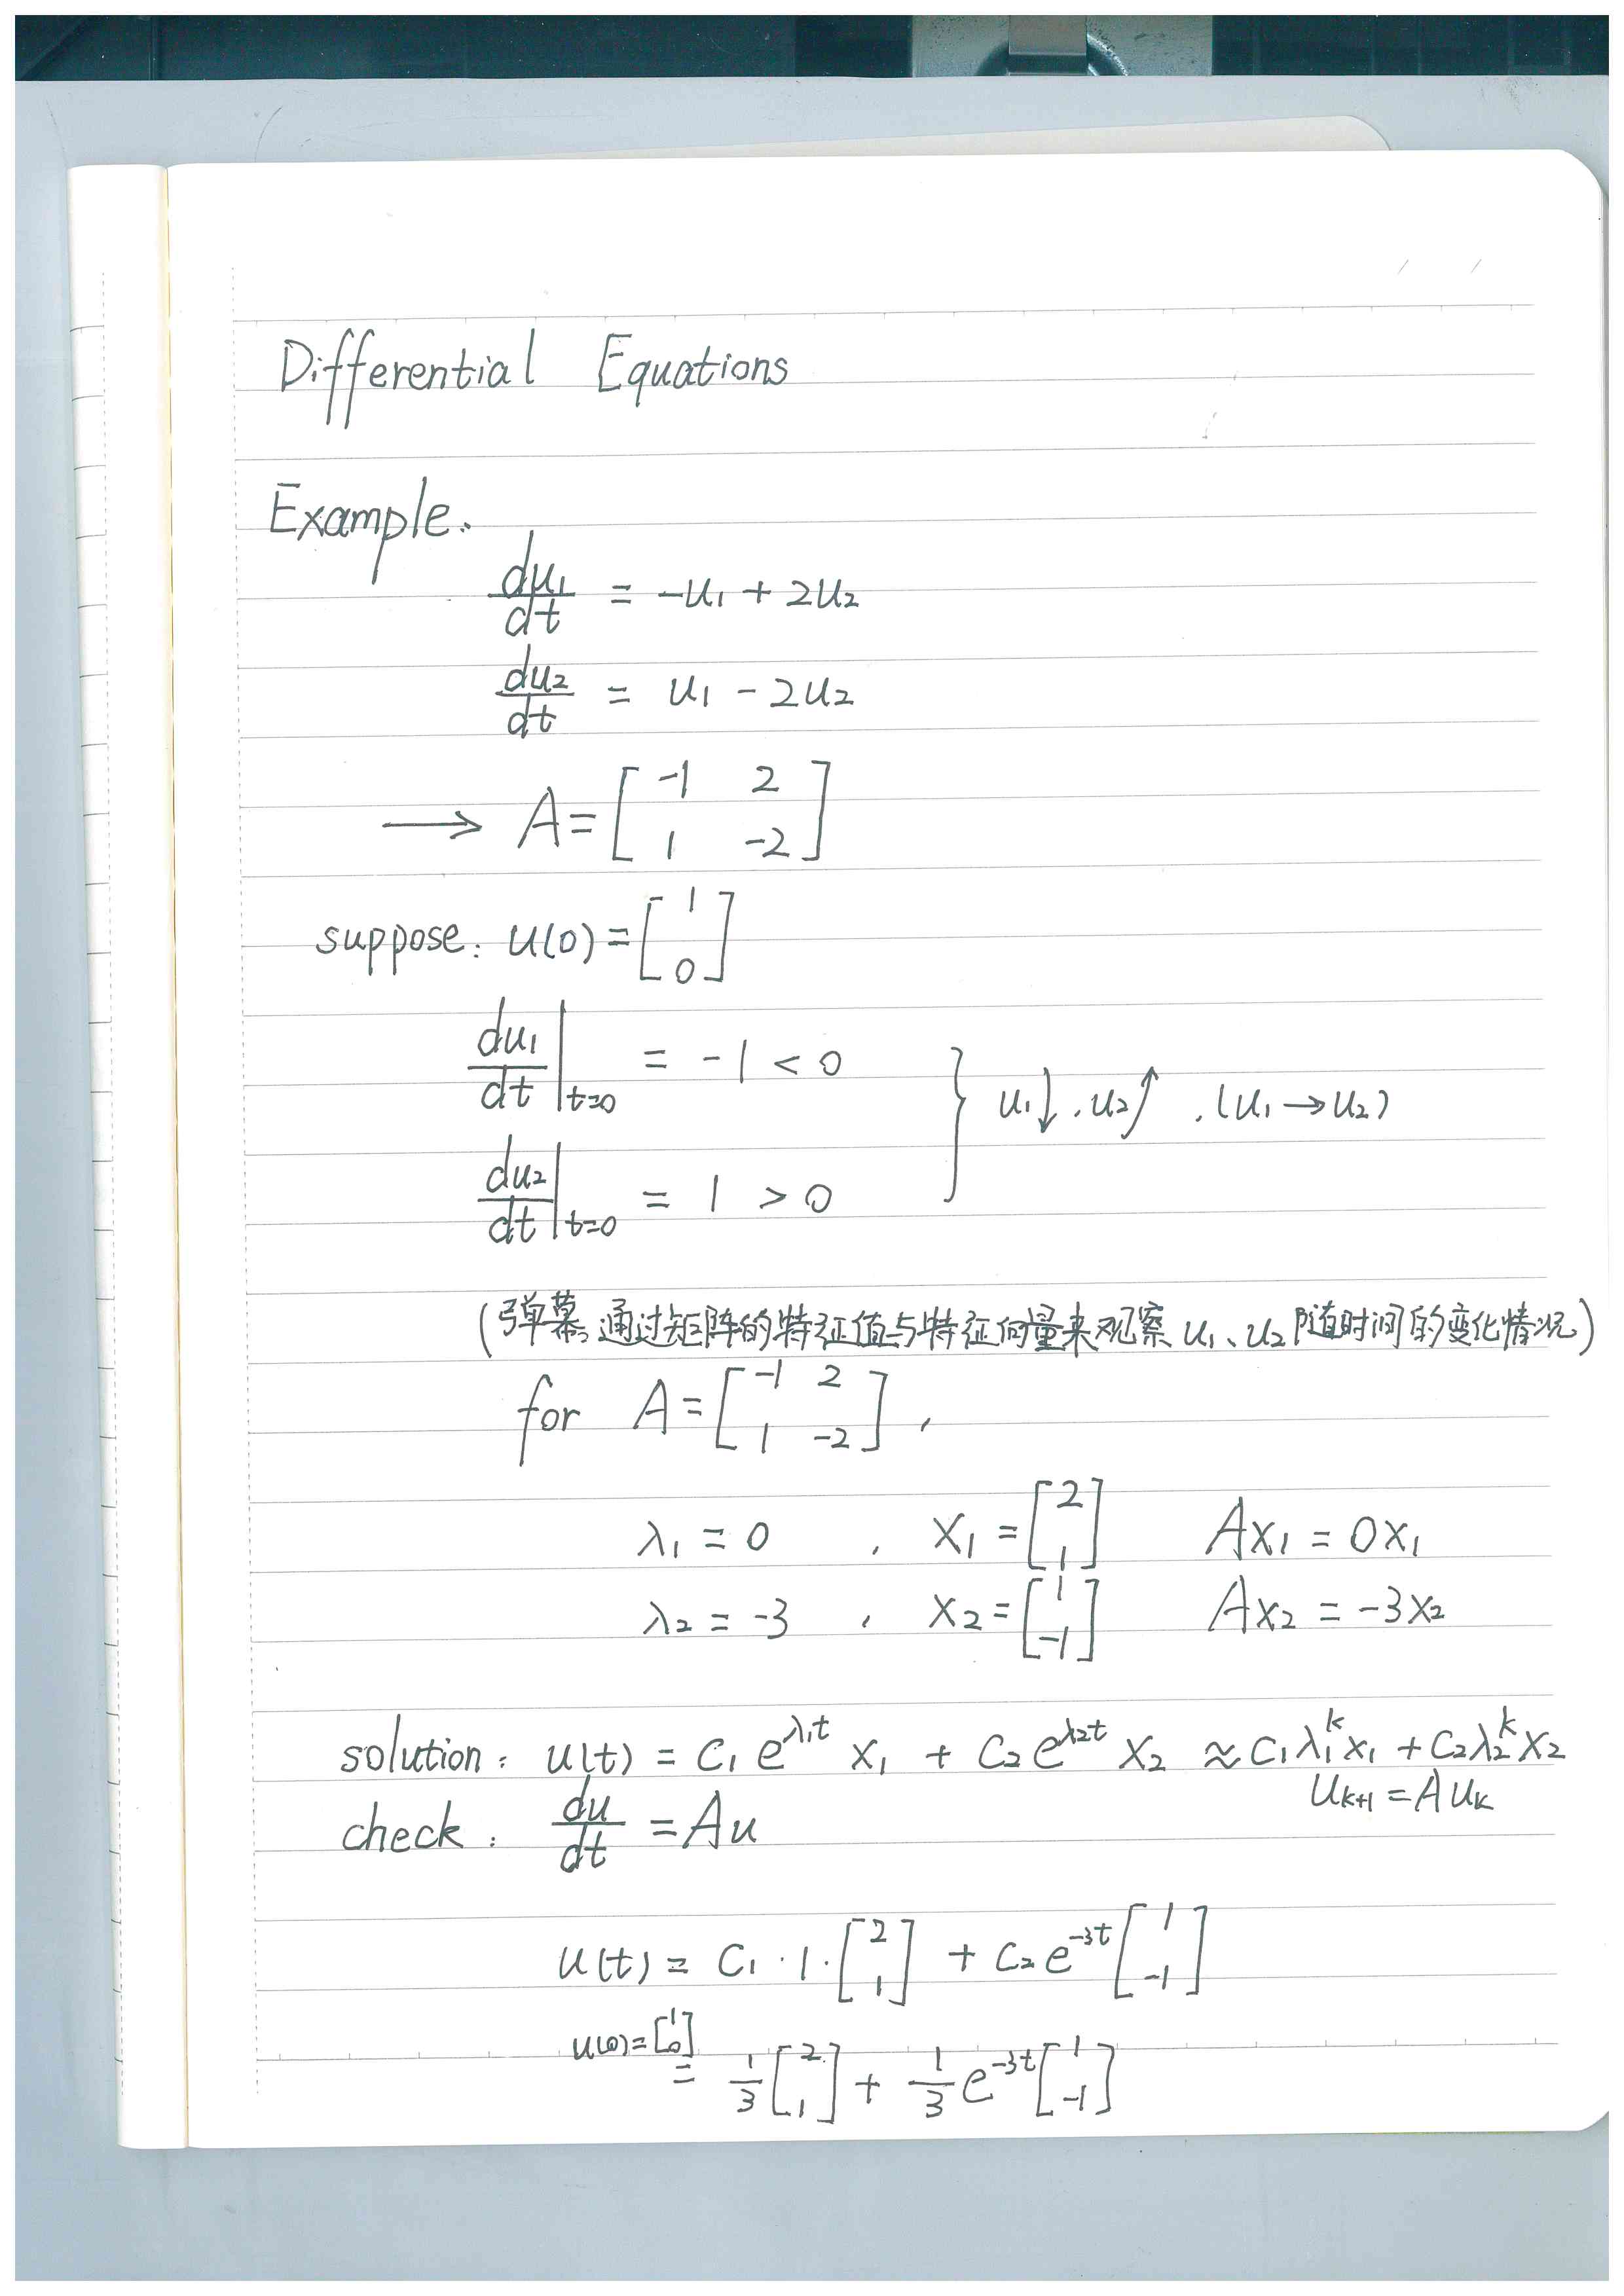 Differential Equations
Example.
du₁/dt = -u₁ + 2u₂
du₂/dt = u₁ - 2u₂
⟶ A = [ -1 2 ; 1 -2 ]
suppose: u(0) = [ 1 ; 0 ]
du₁/dt |t=0 = -1 < 0
} u₁↓, u₂↑ , (u₁→u₂)
du₂/dt |t=0 = 1 > 0
(弹幕: 通过矩阵的特征值与特征向量来观察 u₁、u₂ 随时间的变化情况)
for A = [ -1 2 ; 1 -2 ] ,
λ₁ = 0 , x₁ = [ 2 ; 1 ] Ax₁ = 0x₁
λ₂ = -3 , x₂ = [ 1 ; -1 ] Ax₂ = -3x₂
solution: u(t) = c₁e^{λ₁t} x₁ + c₂e^{λ₂t} x₂ ≈ c₁λ₁^k x₁ + c₂λ₂^k x₂
u_{k+1} = Au_k
check: du/dt = Au
u(t) = c₁ · 1 · [ 2 ; 1 ] + c₂e^{-3t} [ 1 ; -1 ]
u(0) = [ 1 ; 0 ]
= 1/3 [ 2 ; 1 ] + 1/3 e^{-3t} [ 1 ; -1 ]